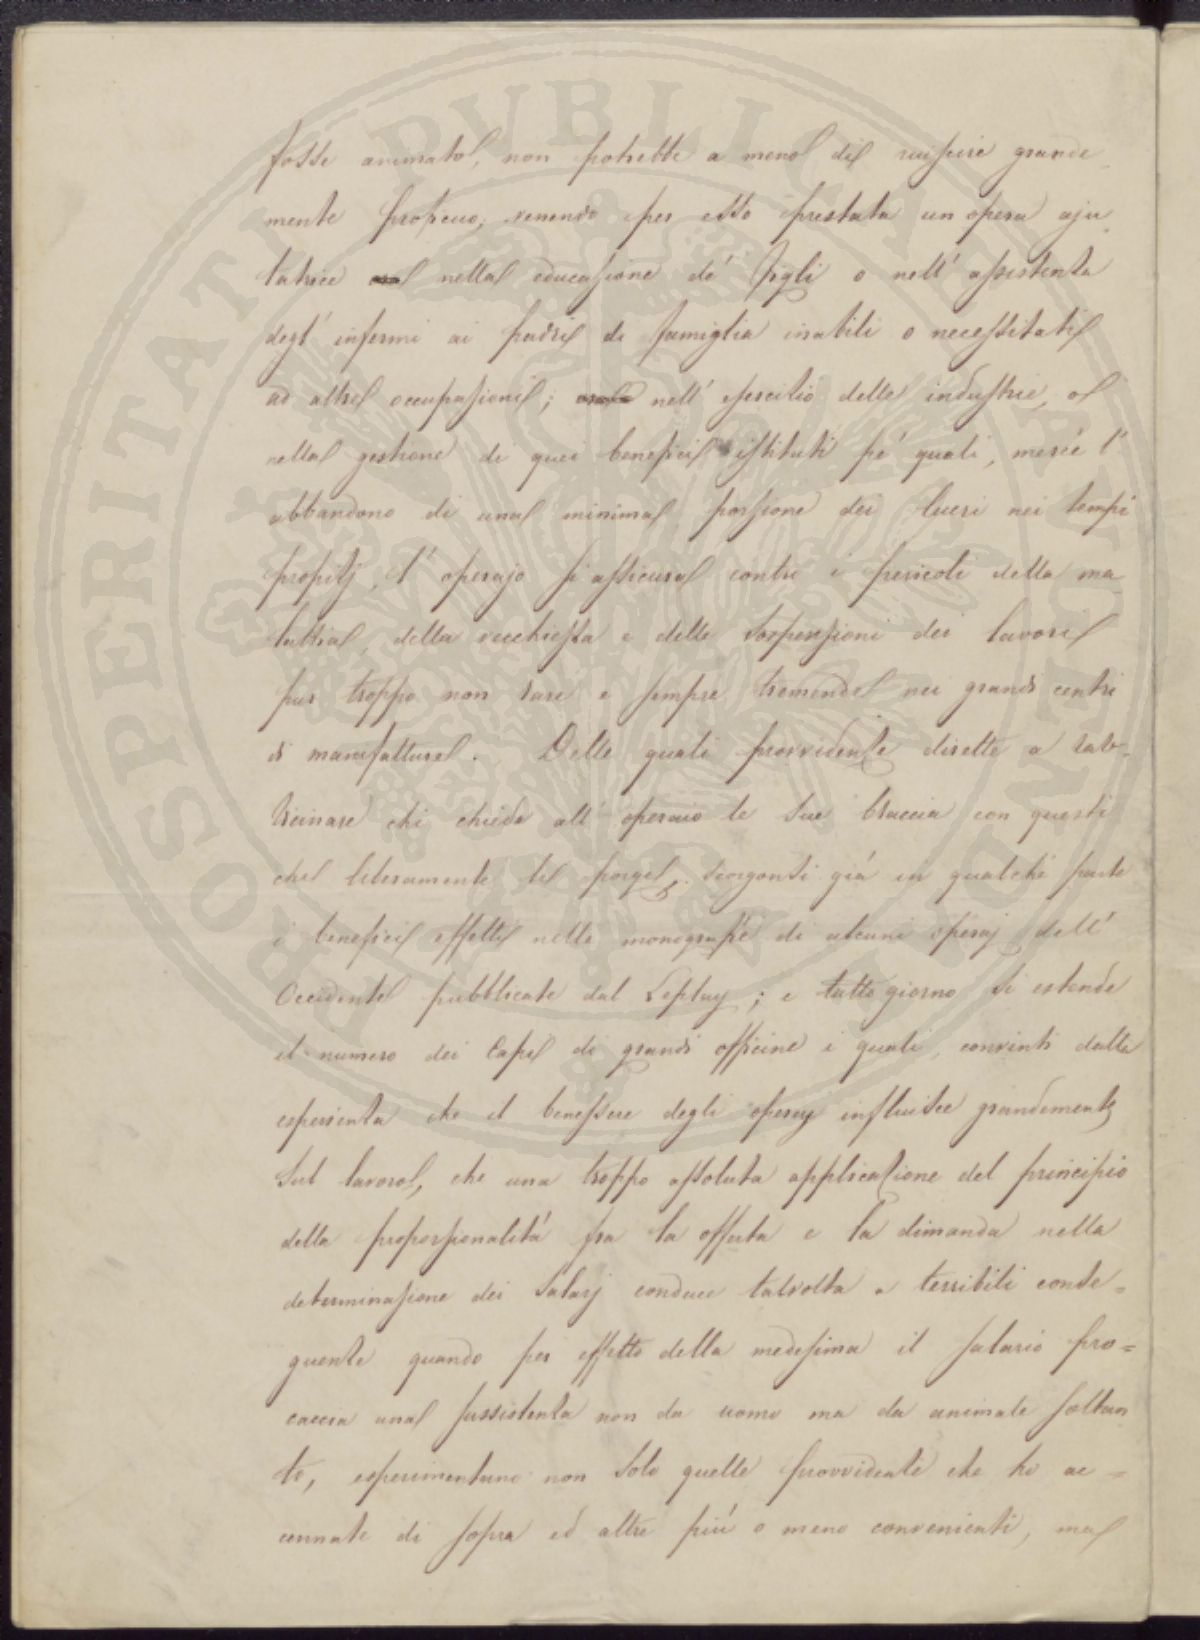 fosse animato, non potrebbe a meno di riuscire grande
mente proficuo, venendo per esso prestata un opera aju
tatrice nella educazione de' figli o nell' assistenza
degl' infermi ai padri di famiglia inabili o necessitati
ad altre occupazioni; nell' esercizio delle industrie, o
nella gestione di quei beneficii istituti pe' quali, mercè l'
abbandono di una minima porzione dei lucri nei tempi
propizj, l' operajo si assicura contro i pericoli della ma
lattia, della vecchiezza e delle sospensioni dei lavori
pur troppo non rare e sempre tremende nei grandi centri
di manifatture. Delle quali provvidenze dirette a rav-
vicinare chi chiede all' operaio le sue braccia con questi
che liberamente le porge, scorgonsi già in qualche parte
i benefici effetti nelle monografie di alcuni operaj dell'
Occidente pubblicate dal Leplay; e tutto giorno si estende
il numero dei Capi di grandi officine i quali, convinti dalla
esperienza che il benessere degli operaj influisce grandemente
sul lavoro, che una troppo assoluta applicazione del principio
della proporzionalità fra la offerta e la dimanda nella
determinazione dei salarj conduce talvolta a terribili conse=
guenze quando per effetto della medesima il salario pro=
caccia una sussistenza non da uomo ma da animale soltan
to, esperimentano non solo quelle provvidenze che ho ac=
cennate di sopra ed altre più o meno convenienti, ma
PROSPERITATI PUBLICAE